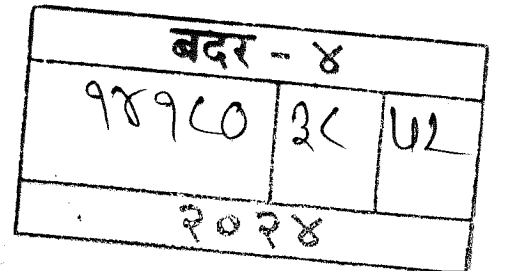 बदर - ४
१४१८० ३८ ५८
२०२४